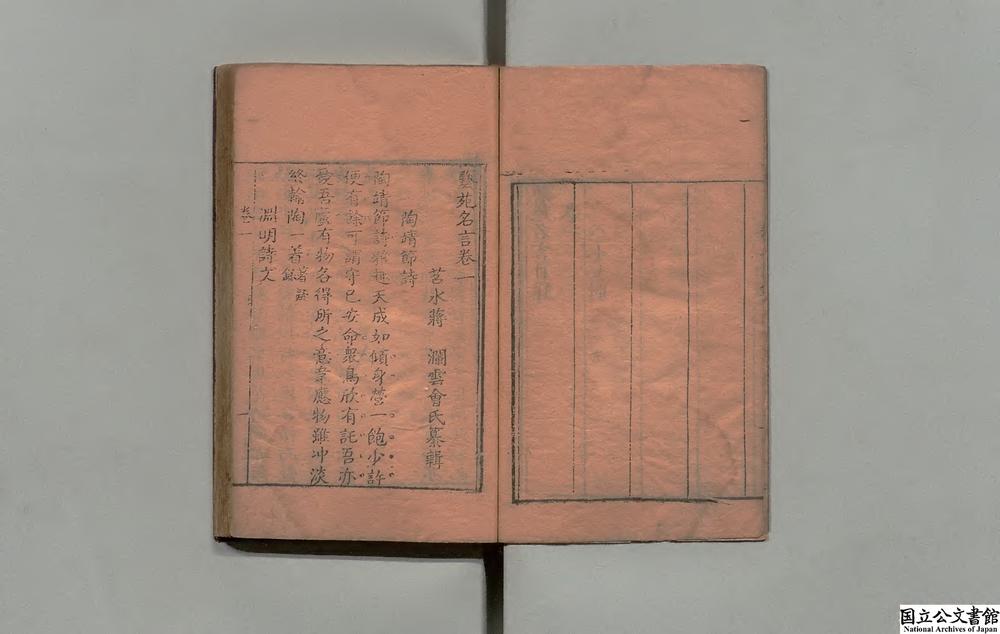 藝苑名言卷一
苕水蔣 瀾雲會氏纂輯
陶靖節詩
陶靖節詩雅趣天成如傾身營一飽少許
便有餘可謂守己安命衆鳥欣有託吾亦
愛吾廬有物各得所之意韋應物雖冲淡
終輸陶一着
淵明詩文
卷一
国立公文書館
National Archives of Japan